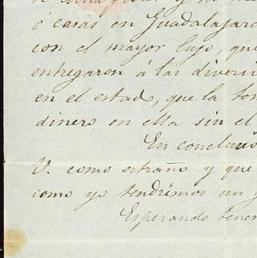 o casas en Guadalajar
con el mayor lujo, que
entregaron á las divers
en el estado, que la to
dinero en ella sin el
En conclusió
V. como estraño y que
como yo tendrémos un
Esperando tener